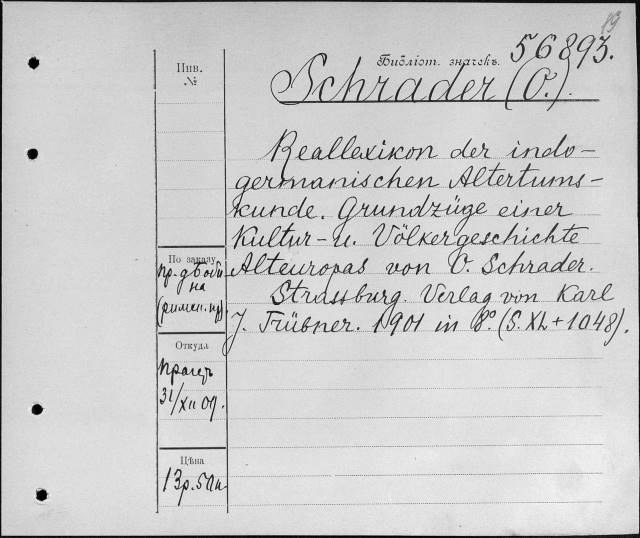 19
Библіот. значекъ. 56893.
Инв.
№
Schrader (O.).
Reallexikon der indo-
germanischen Altertums-
kunde. Grundzüge einer
Kultur- u. Völkergeschichte
Alteuropas von O. Schrader.
Strassburg. Verlag von Karl
J. Trübner. 1901 in 8º. (S. XL + 1048).
По заказу
на
Откуда
31/XII 07.
Цѣна
13 р. 50 к.